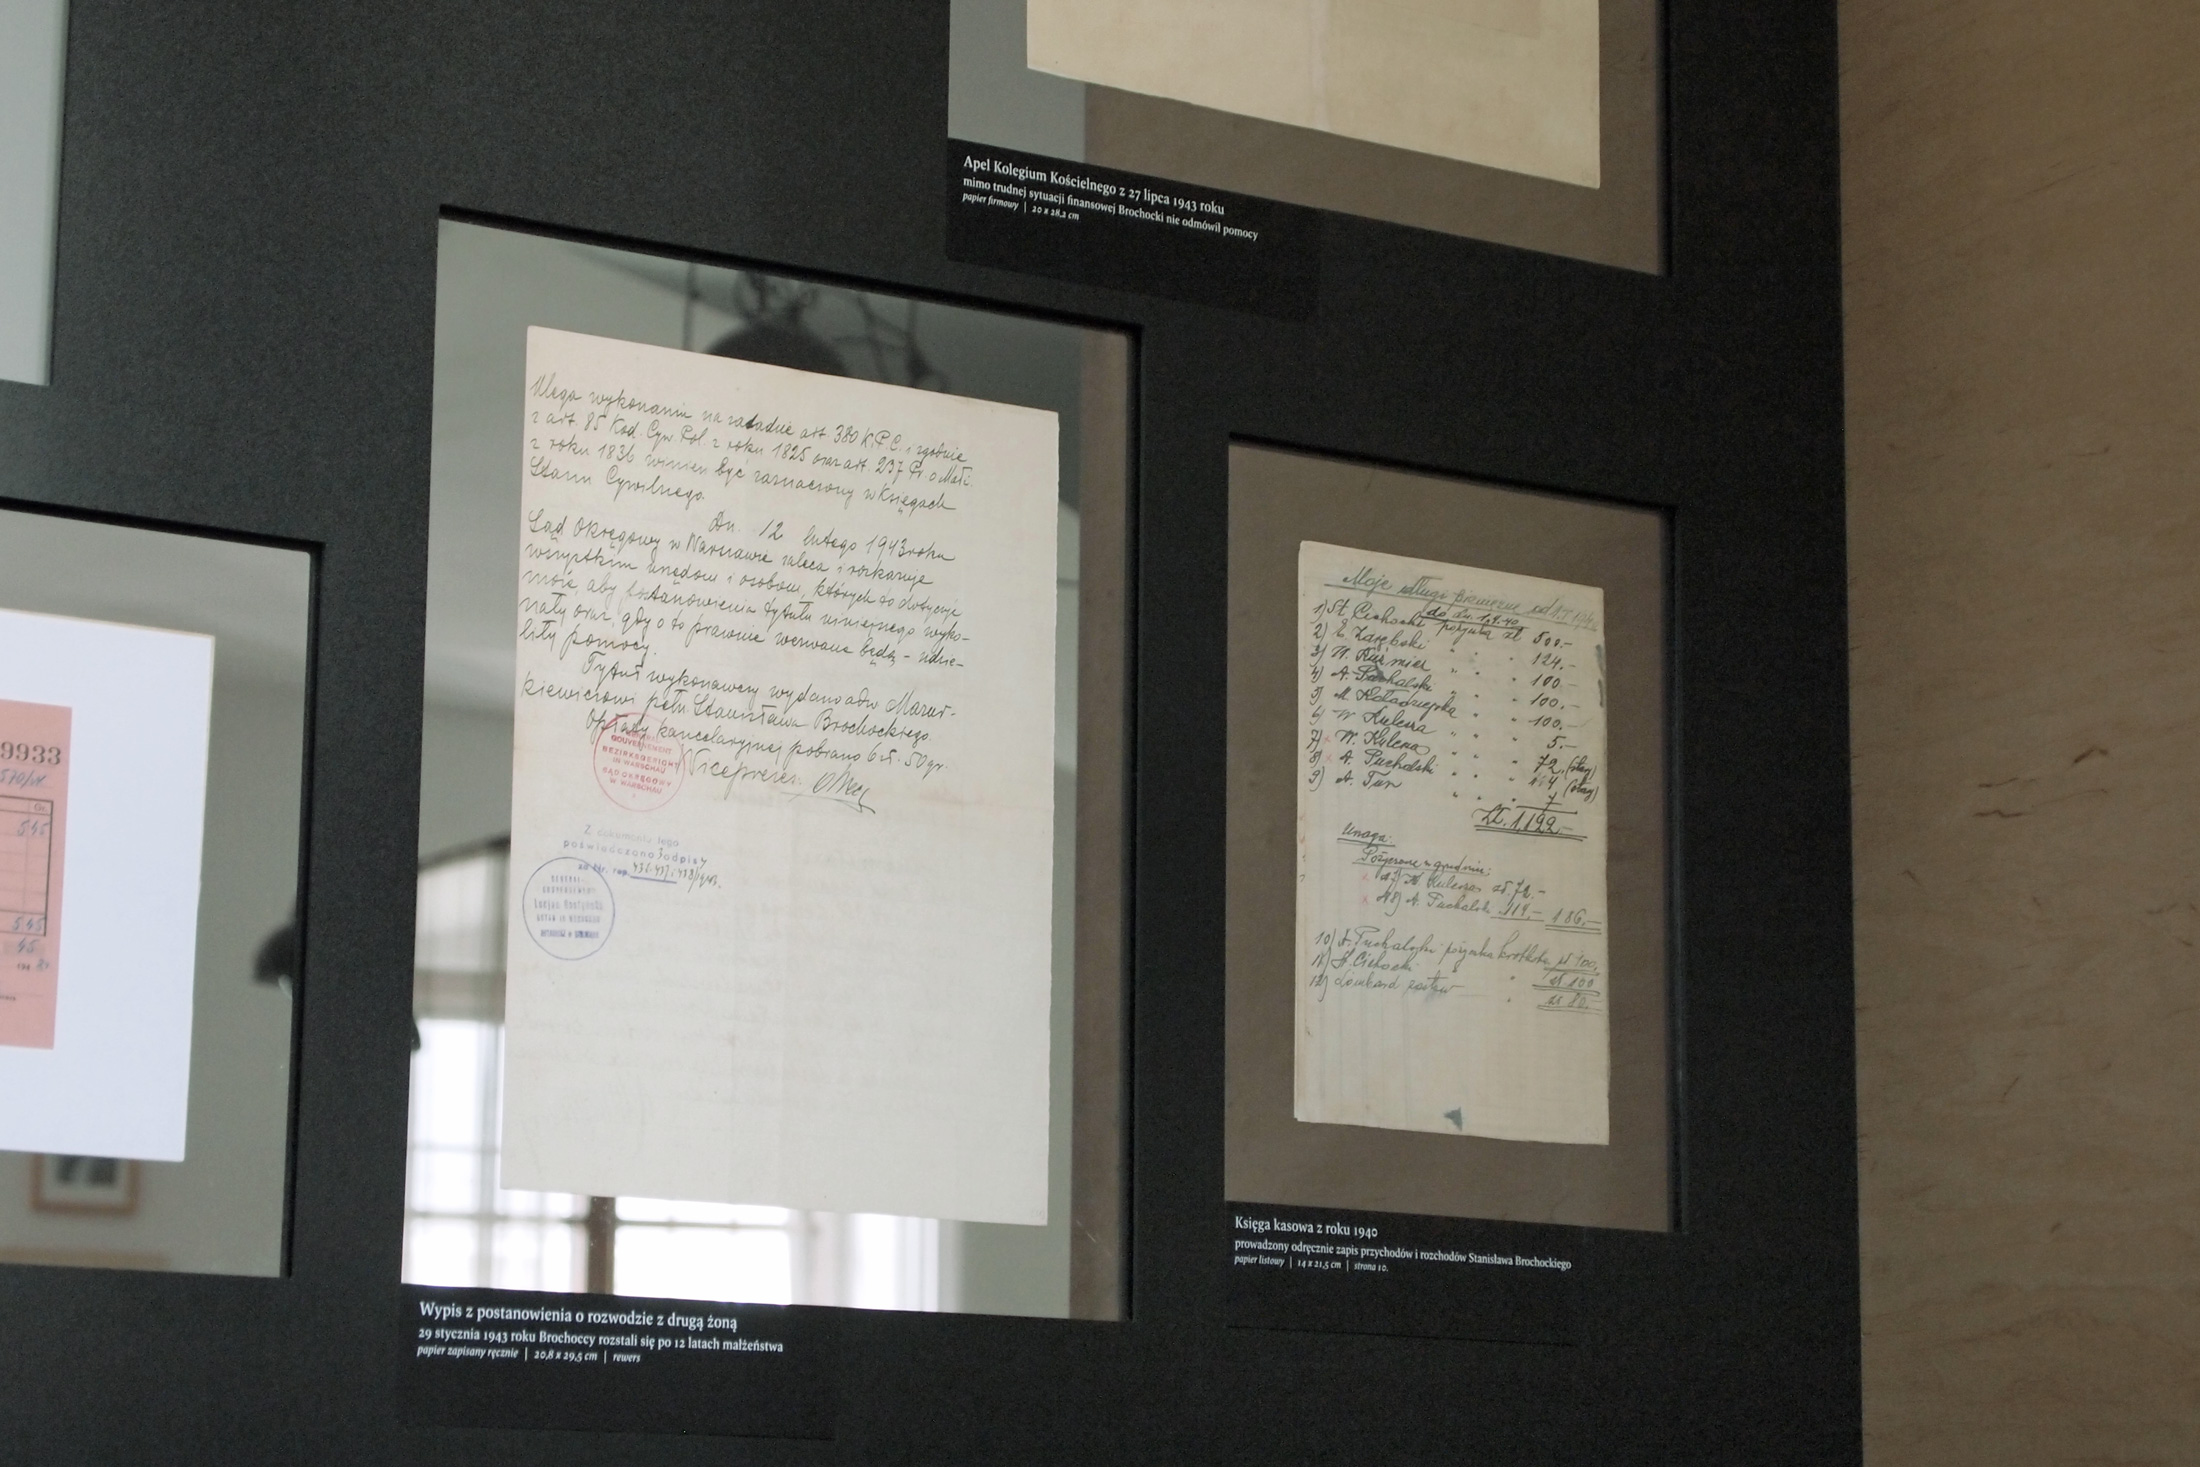 Apel Kolegium Kościelnego z 27 lipca 1943 roku
mimo trudnej sytuacji finansowej Brochocki nie odmówił pomocy
papier firmowy | 20 x 28,2 cm
9933
Gr.
545
545
45
Ulega wykonaniu na zasadzie art. 380 K.P.C. i zgodnie
z art. 85 Kod. Cyw. Pol. z roku 1825 oraz art. 237 Pr. o Małż.
z roku 1836 winien być zaznaczony w Księgach
Stanu Cywilnego.
Dn. 12 lutego 1943 roku
Sąd Okręgowy w Warszawie zaleca i rozkazuje
wszystkim urzędom i osobom, których to dotyczyć
może, aby postanowienia tytułu niniejszego wyko-
nały oraz, gdy o to prawnie wezwane będą - udzie-
liły pomocy.
Tytuł wykonawczy wydano adw. Mazur-
kiewiczowi pełn. Stanisława Brochockiego.
Opłaty kancelaryjnej pobrano 6 zł. 50 gr.
Wiceprezes:
GOUVERNEMENT
BEZIRKSGERICHT
IN WARSCHAU
SĄD OKRĘGOWY
W WARSZAWIE
Z dokumentu tego
poświadczono 3 odpisy
za Nr. rep. 436. 437 i 438/1943.
Moje długi pieniężne od 1.I 1940
do dn. 1.4.40
1) St. Cichocki pożyczka zł 500.-
2) E. Zarębski " " 124.-
3) W. Kuśmier " " 100.-
4) A. Puchalski " " 100.-
5) M. Kołodziejska " " 100.-
6) W. Kulesza " " 5.-
7) W. Kulesza " " 72. (stary)
8) A. Puchalski " " 114 (stary)
9) A. Tur " " " 7
zł. 1,122.-
Uwaga:
Pożyczone w grudniu:
W. Kulesza zł. 72.-
A. Puchalski 114.- 186.-
10) A. Puchalski pożyczka krótkot. zł 100.
11) St. Cichocki " zł 100
12) Lombard zastaw " zł 80.-
Księga kasowa z roku 1940
prowadzony odręcznie zapis przychodów i rozchodów Stanisława Brochockiego
papier listowy | 14 x 21,5 cm | strona 10.
Wypis z postanowienia o rozwodzie z drugą żoną
29 stycznia 1943 roku Brochoccy rozstali się po 12 latach małżeństwa
papier zapisany ręcznie | 20,8 x 29,5 cm | rewers